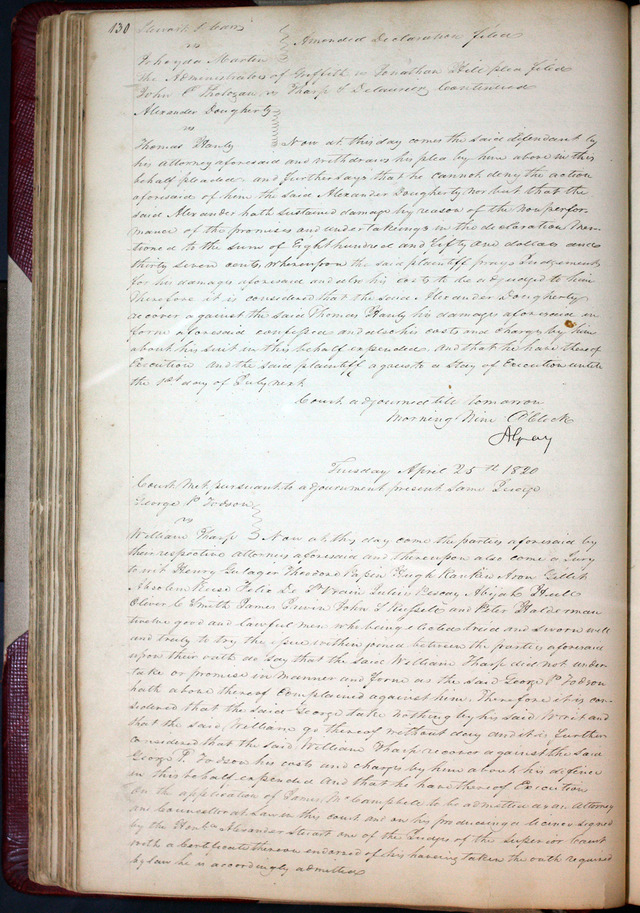 130
Amended Declaration filed
vs
the Administrators of Griffith vs Jonathan Hill plea filed
John P vs Tharp & Continued
Alexander Dougherty
vs
Thomas Hanly Now at this day comes the said defendant by
his attorney aforesaid and withdraws his plea by him above in this
behalf pleaded and further says that he cannot deny the action
aforesaid of him the said Alexander Dougherty nor but that the
said Alexander hath sustained damage by reason of the non perfor-
mance of the promises and undertakings in the declaration men-
tioned to the sum of Eight hundred and fifty one dollars and
thirty seven cents whereupon the said plaintiff prays Judgement
for his damages aforesaid and also his costs to be adjudged to him
Therefore it is considered that the said Alexander Dougherty
recover against the said Thomas Hanly his damages aforesaid in
form aforesaid confessed and also his costs and charges by him
about his suit in this behalf expended. And that he have thereof
Execution and the said plaintiff agrees to a stay of Execution until
the 1st day of July next
Court adjourned till tomorrow
morning Nine OClock
A Gray
Tuesday April 25th 1820
Court met, pursuant to adjournment present same Judge
George P. Dodson
vs
William Tharp Now at this day come the parties aforesaid by
their respective attornies aforesaid and thereupon also come a Jury
to wit Henry Theodore Papin Hugh Rankin Aron
Absolem Felix De St Vrain Julien Abijah Hull
Oliver C Smith James Irwin John S and Peter Halderman
twelve good and lawful men who being elected tried and sworn well
and truly to try the issue within joined between the parties aforesaid
upon their oath do say that the said William Tharp did not under-
take or promise in manner and form as the said George P. Dodson
hath above thereof complained against him. Therefore it is con-
sidered that the said George take nothing by his said Writ and
that the said William go thereof without day and it is further
considered that the said William Tharp recover against the said
George P. Dodson his costs and charges by him about his defence
in this behalf expended And that he have thereof Execution
On the application of James McCampbell to be admitted as an Attorney
and Councellor at Law in this court and on his producing a licence signed
by the Honble Alexander one of the Judges of the Superior Court
with a Certificate thereon endorsed of his having taken the oath required
by law he is accordingly admitted